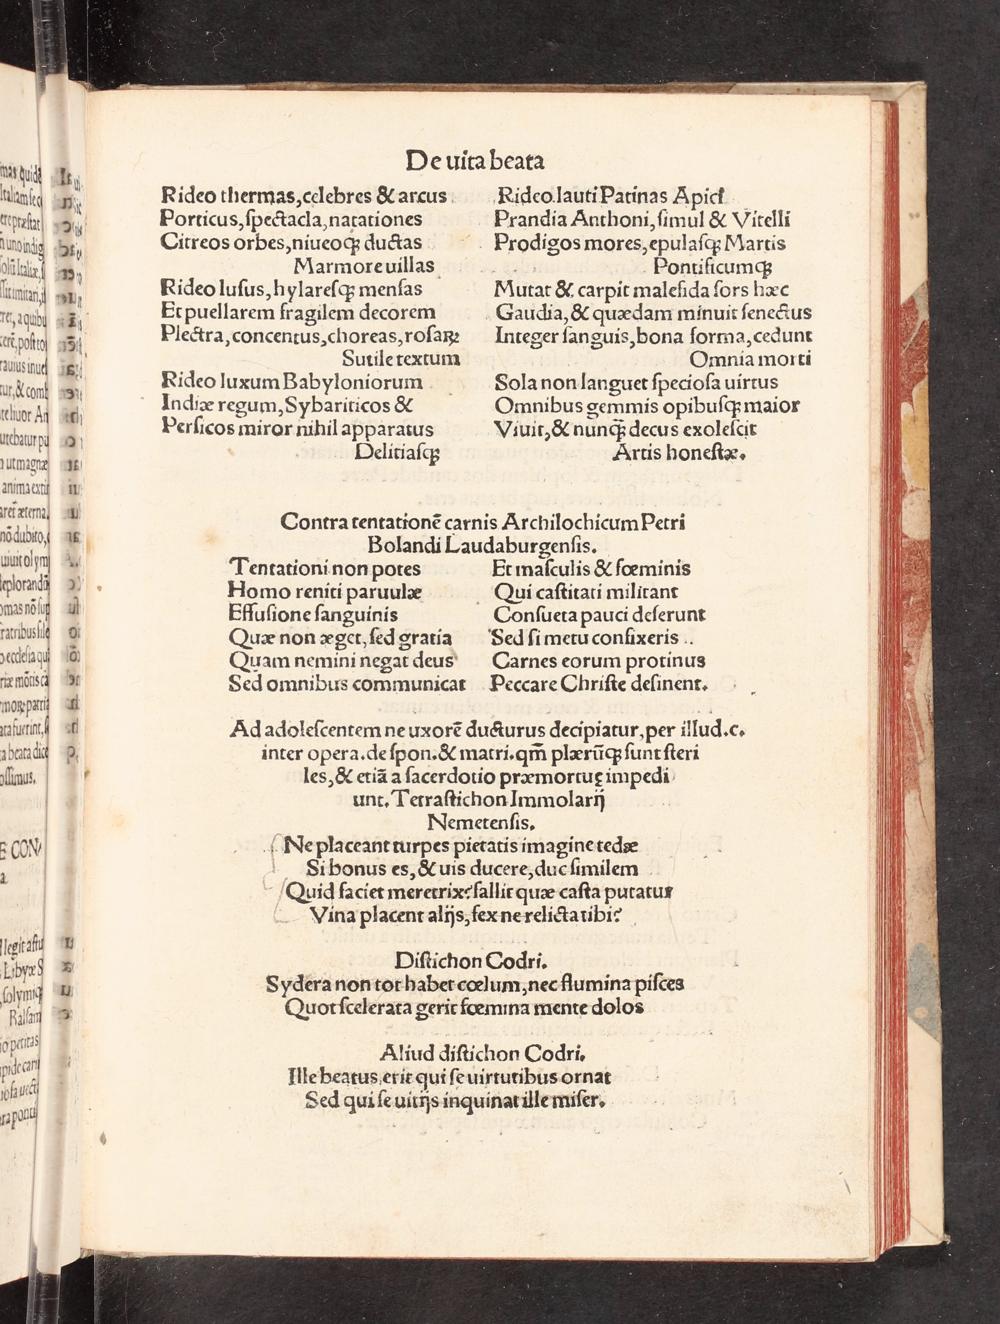 De uita beata
Rideo thermas, celebres & arcus
Porticus, spectacla, natationes
Citreos orbes, niueoqꝫ ductas
Marmore uillas
Rideo lusus, hylaresqꝫ mensas
Et puellarem fragilem decorem
Plectra, concentus, choreas, rosaꝝ
Sutile textum
Rideo luxum Babyloniorum
Indiæ regum, Sybariticos &
Persicos miror nihil apparatus
Delitiasqꝫ
Rideo lauti Patinas Apici
Prandia Anthoni, simul & Vitelli
Prodigos mores, epulasqꝫ Martis
Pontificumqꝫ
Mutat & carpit malefida sors hæc
Gaudia, & quædam minuit senectus
Integer sanguis, bona forma, cedunt
Omnia morti
Sola non languet speciosa uirtus
Omnibus gemmis opibusqꝫ maior
Viuit, & nunq̃ decus exolescit
Artis honestæ.
Contra tentationē carnis Archilochicum Petri
Bolandi Laudaburgensis.
Tentationi non potes
Homo reniti paruulæ
Effusione sanguinis
Quæ non æget, sed gratia
Quam nemini negat deus
Sed omnibus communicat
Et masculis & fœminis
Qui castitati militant
Consueta pauci deserunt
Sed si metu confixeris
Carnes eorum protinus
Peccare Christe desinent.
Ad adolescentem ne uxorē ducturus decipiatur, per illud.c.
inter opera.de spon.& matri.qm̄ plærūqꝫ sunt steri
les, & etiā a sacerdotio præmortuę impedi
unt. Tetrastichon Immolarij
Nemetensis.
Ne placeant turpes pietatis imagine tedæ
Si bonus es, & uis ducere, duc similem
Quid faciet meretrix? fallit quæ casta putatur
Vina placent alijs, fex ne relicta tibi?
Distichon Codri.
Sydera non tot habet cœlum, nec flumina pisces
Quot scelerata gerit fœmina mente dolos
Aliud distichon Codri.
Ille beatus erit qui se uirtutibus ornat
Sed qui se uitijs inquinat ille miser.